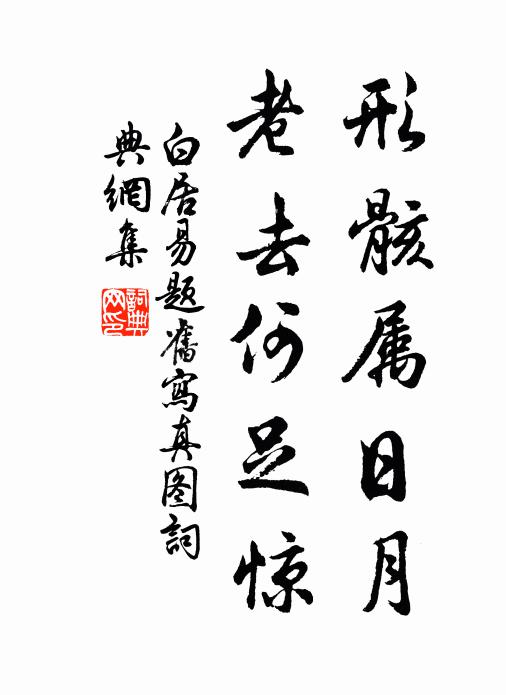 形骸属日月
老去何足惊
白居易题舊寫真图詞
典網集
詞典网印